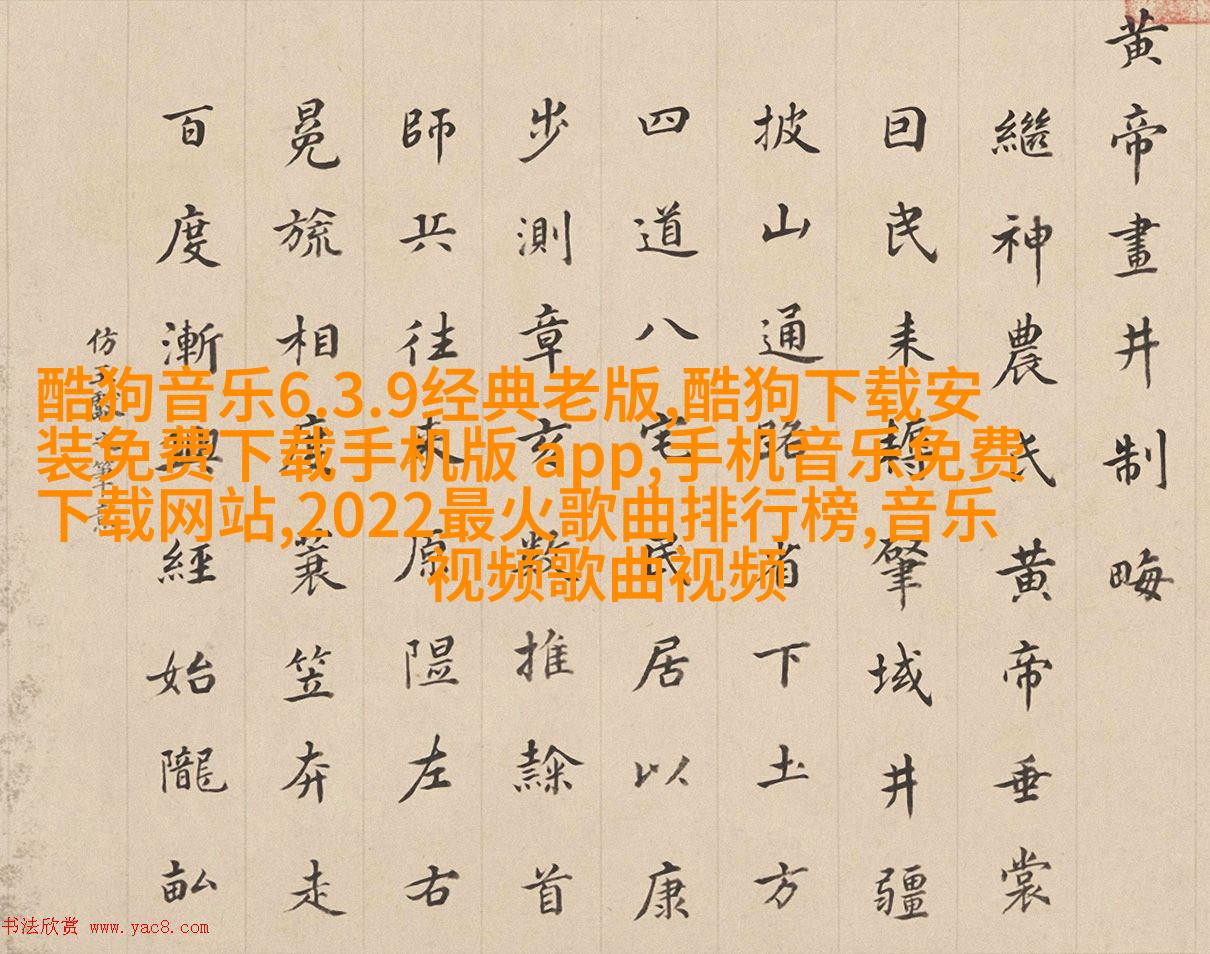 黄帝畫井制畮
繼神農氏黄帝垂裳
囙民耒耨肇域井疆
披山通路省下土方
四道八宅民居以康
步測章亥數推隸首
師兵往来原隰左右
冕旒相度蓑笠奔走
百度漸興經始隴畝
仿王獻之筆意
酷狗音乐6.3.9经典老版,酷狗下载安
装免费下载手机版 app,手机音乐免费
下载网站,2022最火歌曲排行榜,音乐
视频歌曲视频
书法欣赏 www.yac8.com